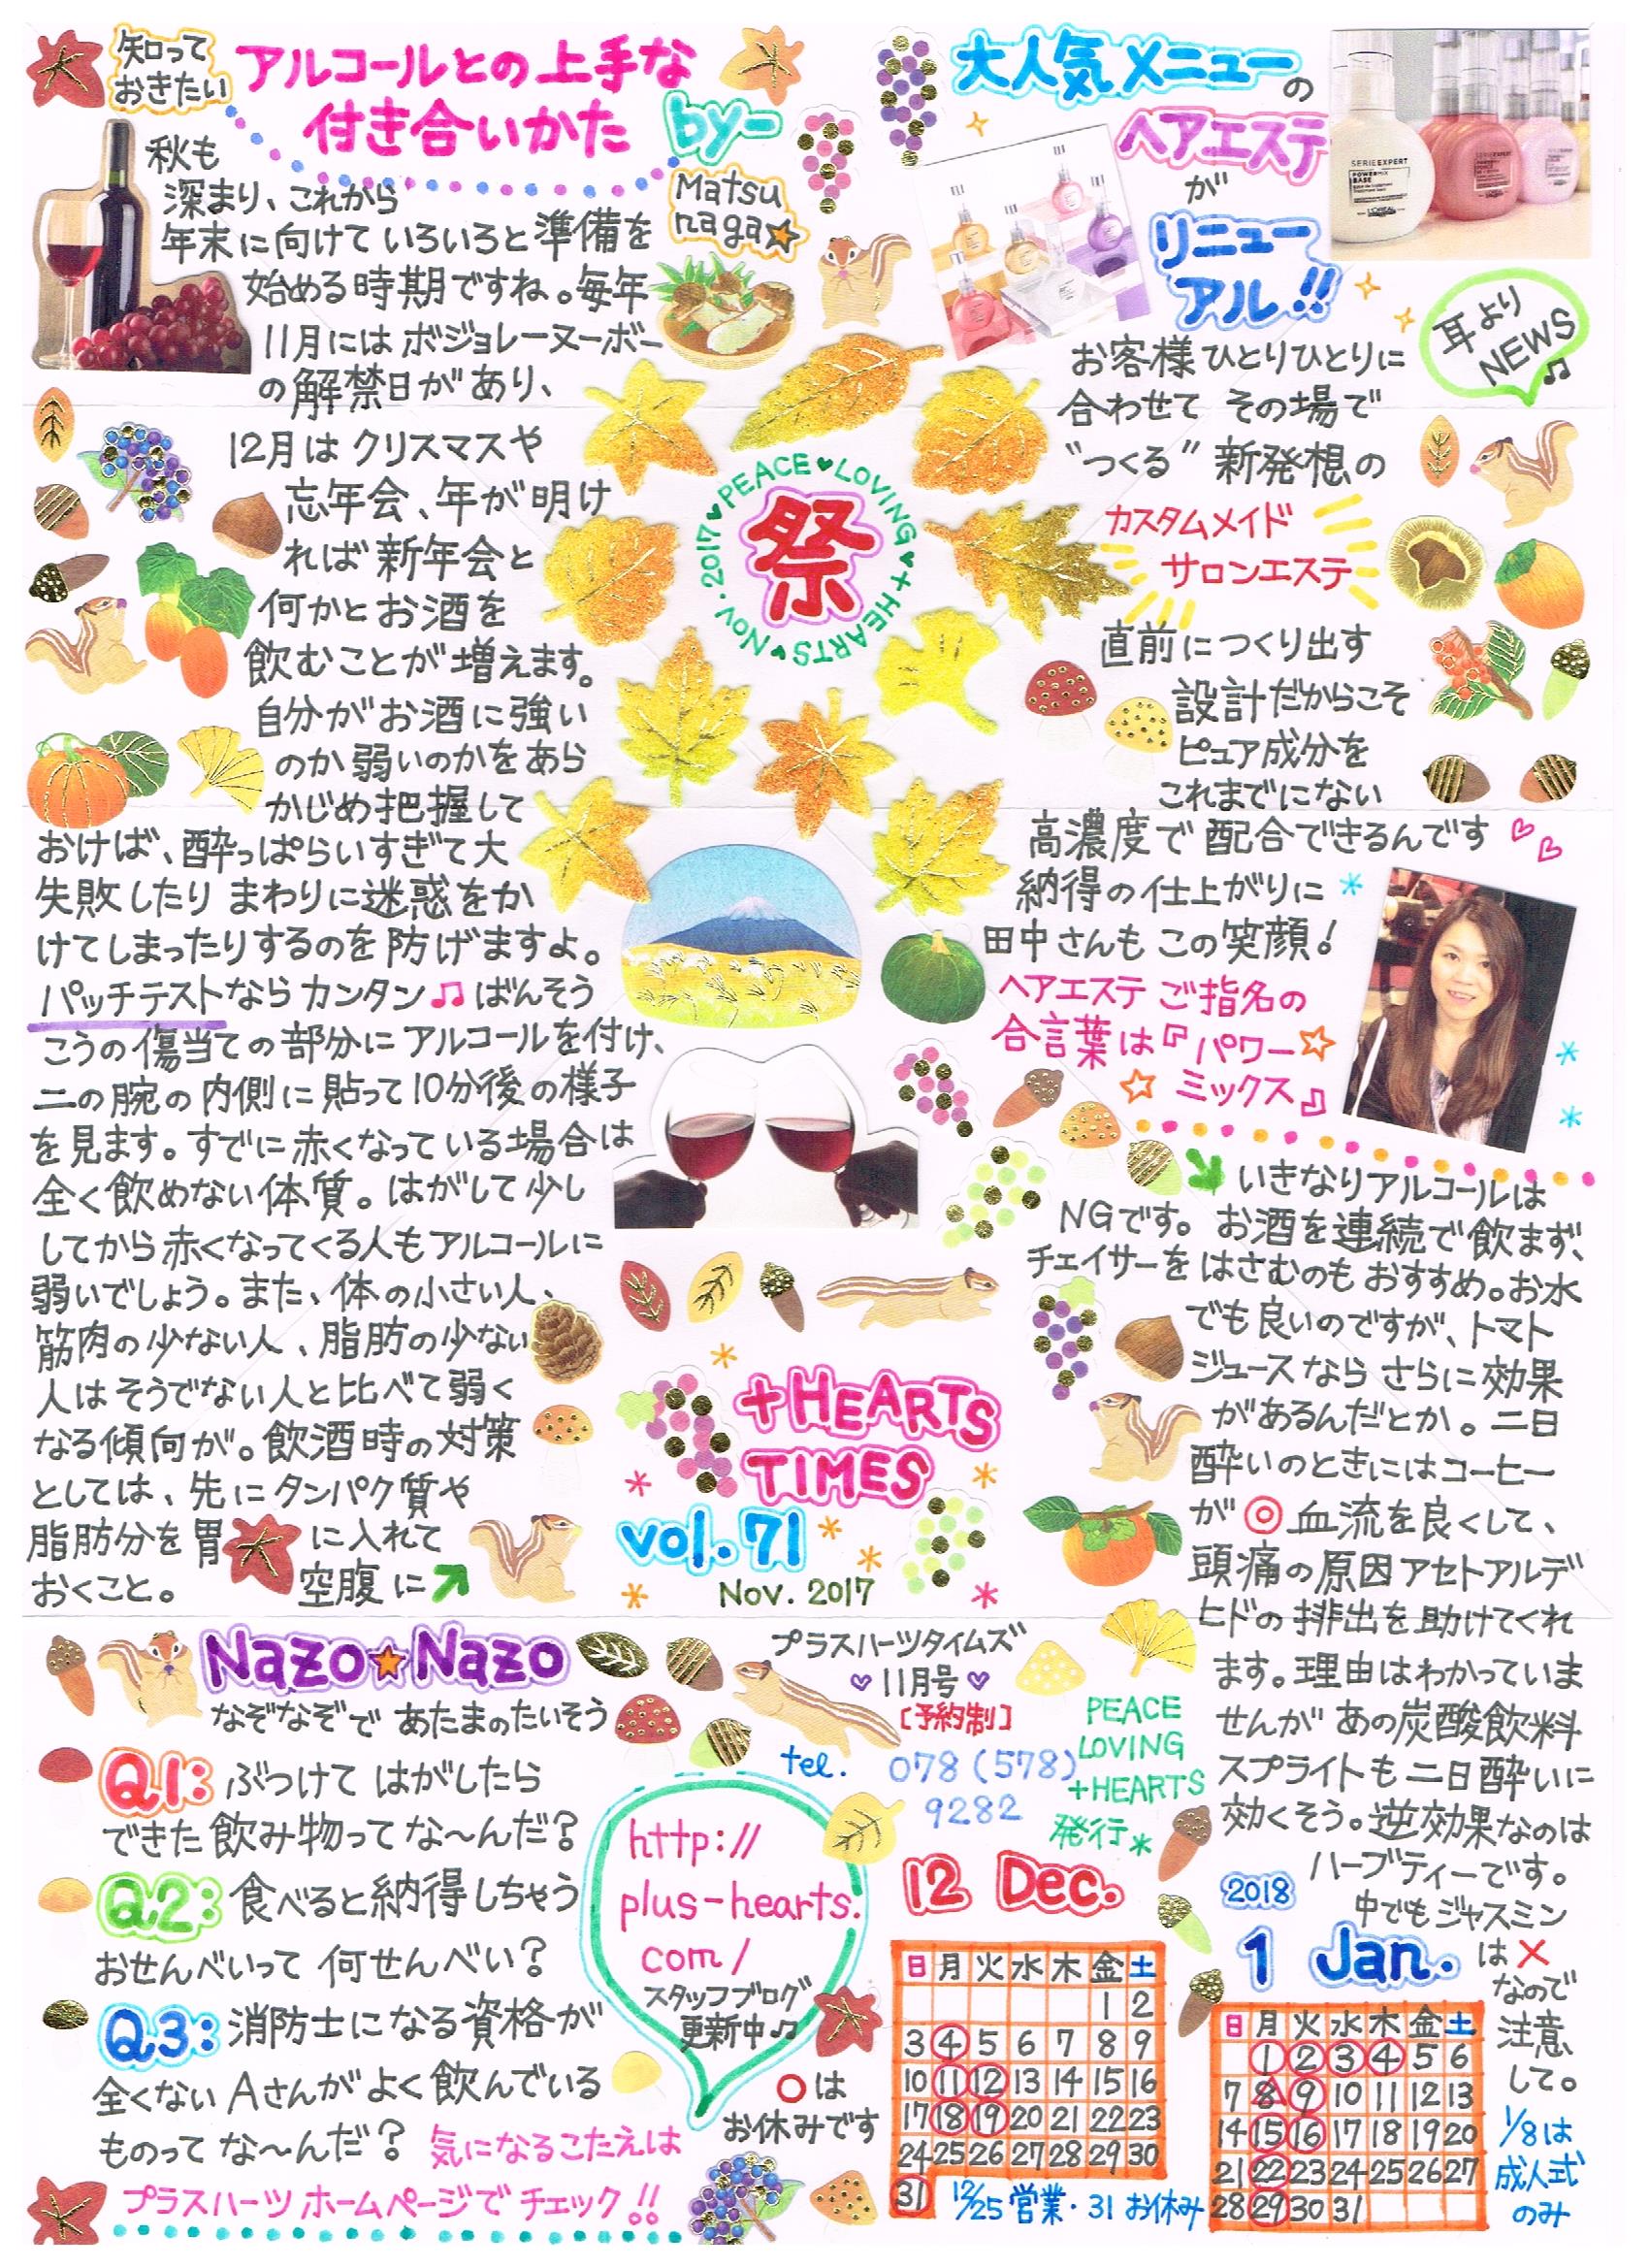 知って
おきたい
アルコールとの上手な
付き合いかた
by-
Matsu
naga
秋も
深まり、これから
年末に向けていろいろと準備を
始める時期ですね。毎年
11月にはボジョレーヌーボー
の解禁日があり、
12月はクリスマスや
忘年会、年が明け
れば新年会と
何かとお酒を
飲むことが増えます。
自分がお酒に強い
のか弱いのかをあら
かじめ把握して
おけば、酔っぱらいすぎて大
失敗したりまわりに迷惑をか
けてしまったりするのを防げますよ。
パッチテストならカンタン♫ばんそう
こうの傷当ての部分にアルコールを付け、
二の腕の内側に貼って10分後の様子
を見ます。すでに赤くなっている場合は
全く飲めない体質。はがして少し
してから赤くなってくる人もアルコールに
弱いでしょう。また、体の小さい人、
筋肉の少ない人、脂肪の少ない
人はそうでない人と比べて弱く
なる傾向が。飲酒時の対策
としては、先にタンパク質や
脂肪分を胃に入れて
おくこと。空腹に
いきなりアルコールは
NGです。お酒を連続で飲まず、
チェイサーをはさむのもおすすめ。お水
でも良いのですが、トマト
ジュースならさらに効果
があるんだとか。二日
酔いのときにはコーヒー
が◎血流を良くして、
頭痛の原因アセトアルデ
ヒドの排出を助けてくれ
ます。理由はわかっていま
せんがあの炭酸飲料
スプライトも二日酔いに
効くそう。逆効果なのは
ハーブティーです。
中でもジャスミン
は×
なので
注意
して。
大人気メニューの
ヘアエステ
が
リニュー
アル!!
SERIE EXPERT
POWERMIX
BASE
L'ORÉAL
耳より
NEWS♫
お客様ひとりひとりに
合わせてその場で
"つくる"新発想の
カスタムメイド
サロンエステ
直前につくり出す
設計だからこそ
ピュア成分を
これまでにない
高濃度で配合できるんです
納得の仕上がりに
田中さんもこの笑顔!
ヘアエステご指名の
合言葉は『パワー
ミックス』
祭
2017♥PEACE♥LOVING♥+HEARTS♥Nov.
+HEARTS
TIMES
vol.71
Nov. 2017
Nazo★Nazo
なぞなぞであたまのたいそう
Q1:ぶつけてはがしたら
できた飲み物ってな〜んだ?
Q2:食べると納得しちゃう
おせんべいって何せんべい?
Q3:消防士になる資格が
全くないAさんがよく飲んでいる
ものってな〜んだ?気になるこたえは
プラスハーツホームページでチェック!!
プラスハーツタイムズ
11月号
[予約制]
tel.
078(578)
9282
PEACE
LOVING
+HEARTS
発行
http://
plus-hearts.
com/
スタッフブログ
更新中♫
○は
お休みです
12 Dec.
日月火水木金土
1 2
3 4 5 6 7 8 9
10 11 12 13 14 15 16
17 18 19 20 21 22 23
24 25 26 27 28 29 30
31
12/25営業・31お休み
2018
1 Jan.
日月火水木金土
1 2 3 4 5 6
7 8 9 10 11 12 13
14 15 16 17 18 19 20
21 22 23 24 25 26 27
28 29 30 31
1/8は
成人式
のみ